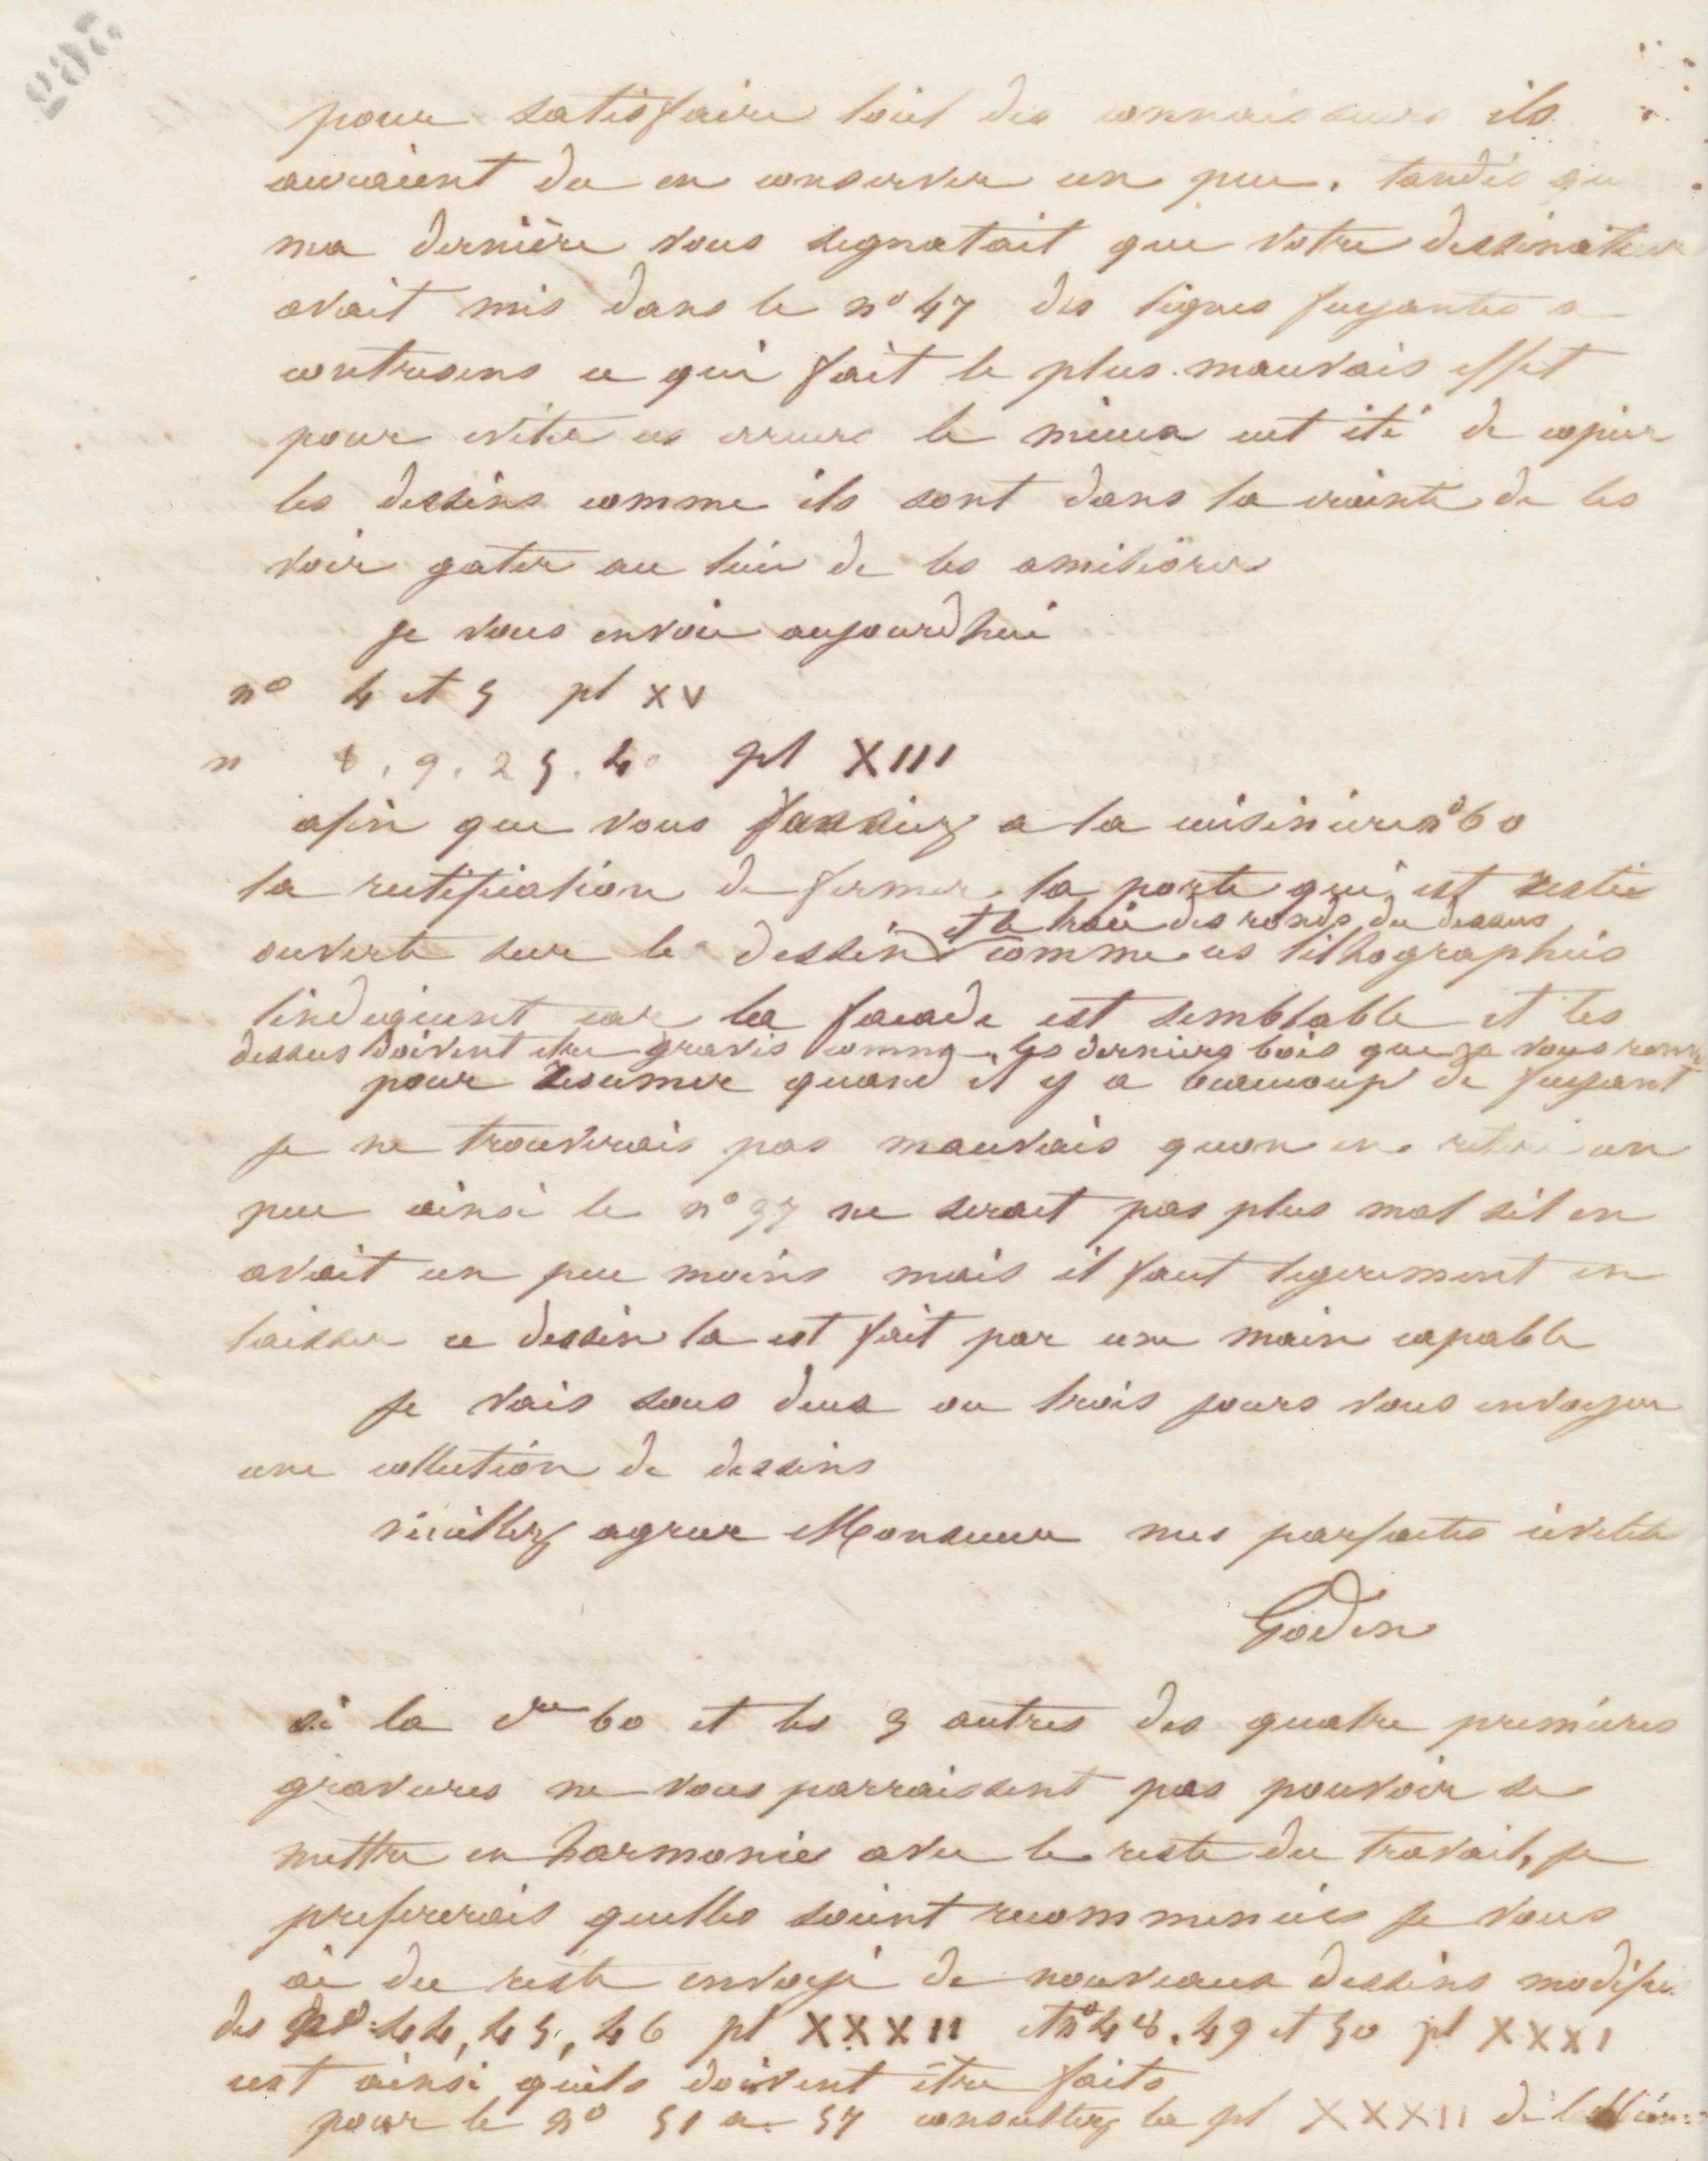 pour satisfaire l'oeil des connaisseurs ils
auraient du en conserver un peu. tandis que
ma dernière vous segnalait que votre dessinateur
avait mis dans le n° 47 des lignes fuyantes a
contresens ce qui fait le plus mauvais effet
pour eviter ces erreurs le mieux eut été de copier
les dessins comme ils sont dans la crainte de les
voir gater au lieu de les ameliorer
je vous envoie aujourdhui
n° 4 et 5 pl XV
n 8, 9, 25, 40 pl XIII
afin que vous fassiez a la cuisiniere n° 60
la rectification de fermer la porte qui est restée
et le trou des ronds du dessus
ouverte sur le dessin comme ces lithographies
lindiquent car la facade est semblable et les
dessus doivent etre gravés comme les derniers bois que je vous
pour resumer quand il y a beaucoup de fuyant
je ne trouverais pas mauvais quon en retire un
peu ainsi le n° 37 ne serait pas plus mal sil en
avait un peu moins mais il faut legerement en
laisser ce dessin la est fait par une main capable
je vais sous deux ou trois jours vous envoyer
une collection de dessins
veuillez agreer Monsieur mes parfaites civilités
Godin
si la 60 et les 3 autres des quatre premieres
gravures ne vous parraissent pas pouvoir se
mettre en harmonie avec le reste du travail, je
prefererais quelles soient recommencées je vous
ai du reste envoyé de nouveaux dessins modifiés
des n° 44, 45, 46 pl XXXII et n° 48, 49 et 50 pl XXXI
cest ainsi quils doivent être faits
pour le n° 51 a 57 consultez la pl XXXII de